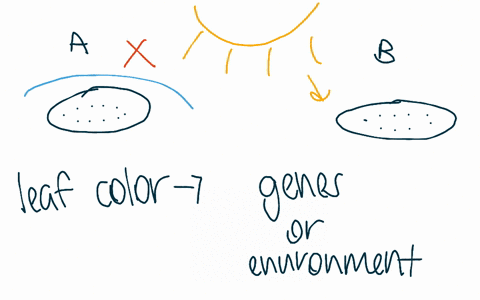 A X B
leaf color → genes
or
environment